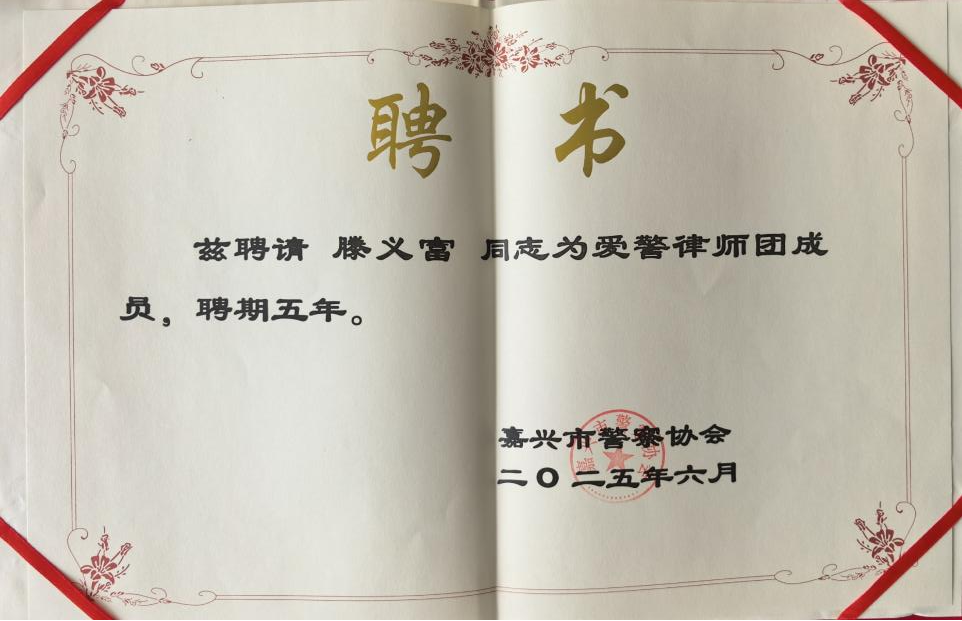 聘 书
兹聘请 滕义富 同志为爱警律师团成
员，聘期五年。
嘉兴市警察协会
二〇二五年六月
嘉兴市警察协会